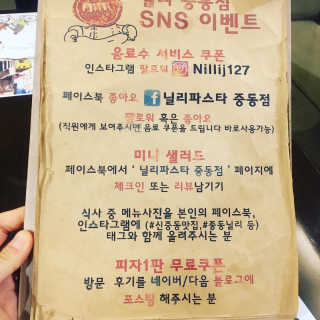 닐리 중동점
SNS 이벤트
음료수 서비스 쿠폰
인스타그램 팔로워 Nillij127
페이스북 좋아요 f 닐리파스타 중동점
팔로워 혹은 좋아요
(직원에게 보여주시면 음료 쿠폰을 드립니다 바로사용가능)
미니 샐러드
페이스북에서 ' 닐리파스타 중동점 ' 페이지에
체크인 또는 리뷰남기기
식사 중 메뉴사진을 본인의 페이스북,
인스타그램에 (#신중동맛집,#중동닐리 등)
태그와 함께 올려주시는 분
피자1판 무료쿠폰
방문 후기를 네이버/다음 블로그에
포스팅 해주시는 분